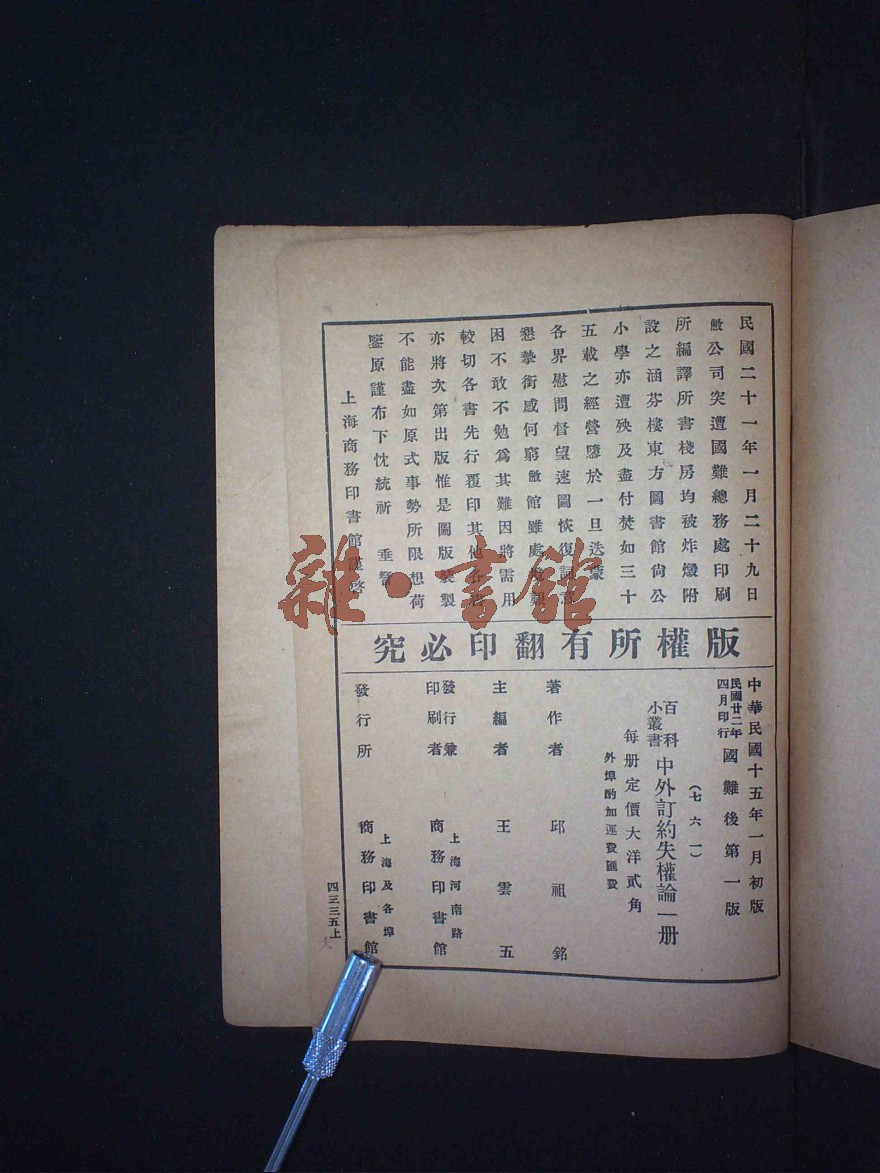 民國二十一年一月二十九日
敝公司突遭國難總務處印刷
所編譯所書棧房均被炸燬附
設之涵芬樓東方圖書館尙公
小學亦遭殃及盡付焚如三十
五載之經營隳於一旦迭蒙
各界慰問督望速圖恢復詞意
懇摯銜感何窮敝館雖處境艱
困不敢不勉爲其難因將需用
較切各書先行覆印其他各書
亦將次第出版惟是圖版裝製
不能盡如原式事勢所限想荷
鑒原謹布下忱統祈 垂詧
上海商務印書館謹啓
版權所有翻印必究
中華民國十五年一月初版
民國廿二年四月印行 國難後第一版
(七六一)
百科小叢書 中外訂約失權論一册
每册定價大洋貳角
外埠酌加運費匯費
著作者 邱祖銘
主編者 王雲五
發行兼印刷者 上海河南路 商務印書館
發行所 上海及各埠 商務印書館
四三三五上
雜·書館